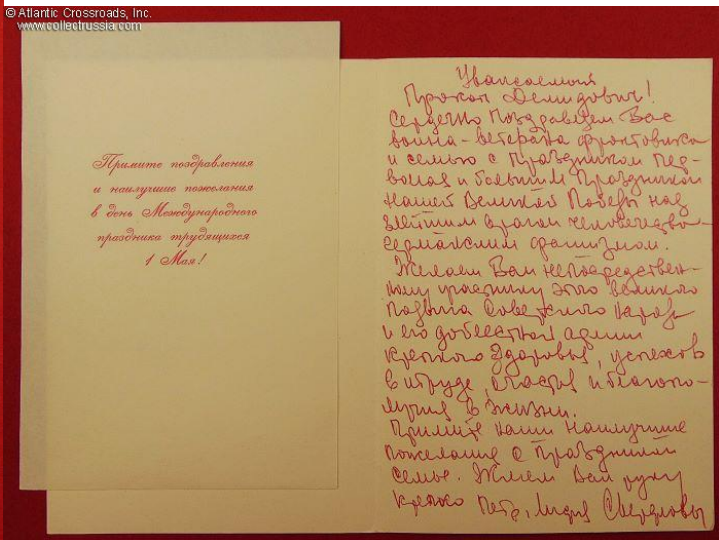 © Atlantic Crossroads, Inc.
www.collectrussia.com
Примите поздравления
и наилучшие пожелания
в день Международного
праздника трудящихся
1 Мая!
Уважаемый
Прокоп Демидович!
Сердечно поздравляем Вас
воина-ветерана фронтовика
и семью с праздником Пер-
вомая и большим праздником
нашей Великой Победы над
злейшим врагом человечества
германским фашизмом.
Желаем Вам непосредствен-
ному участнику этого великого
подвига Советского народа
и его доблестной армии
крепкого здоровья, успехов
в труде, счастья и благопо-
лучия в жизни.
Примите наши наилучшие
пожелания с праздником
семье. Жмем Вам руку
крепко Петр, Лидия